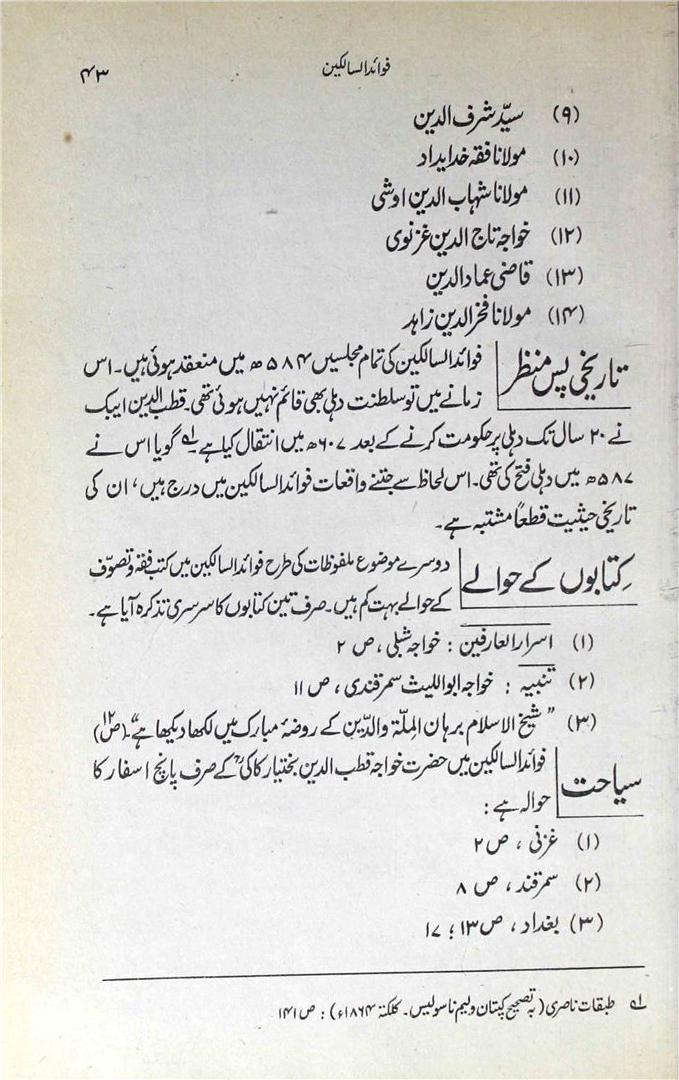 فوائد السالکین
۴۳
(۹) سیّد شرف الدین
(۱۰) مولانا فقہ خدایداد
(۱۱) مولانا شہاب الدین اوشی
(۱۲) خواجہ تاج الدین غزنوی
(۱۳) قاضی عماد الدین
(۱۴) مولانا فخر الدین زاہد
تاریخی پس منظر
فوائد السالکین کی تمام مجلسیں ۵۸۴ھ میں منعقد ہوئی ہیں۔ اس
زمانے میں تو سلطنت دہلی بھی قائم نہیں ہوئی تھی۔ قطب الدین ایبک
نے ۲۰ سال تک دہلی پر حکومت کرنے کے بعد ۶۰۷ھ میں انتقال کیا ہے۔ ؎۱ گویا اس نے
۵۸۷ھ میں دہلی فتح کی تھی۔ اس لحاظ سے جتنے واقعات فوائد السالکین میں درج ہیں، ان کی
تاریخی حیثیت قطعاً مشتبہ ہے۔
کتابوں کے حوالے
دوسرے موضوع ملفوظات کی طرح فوائد السالکین میں کتب فقہ و تصوّف
کے حوالے بہت کم ہیں۔ صرف تین کتابوں کا سرسری تذکرہ آیا ہے۔
(۱) اسرار العارفین : خواجہ شبلی ، ص ۲
(۲) تنبیہ : خواجہ ابو اللیث سمرقندی ، ص ۱۱
(۳) "شیخ الاسلام برہان المِلّۃ والدّین کے روضۂ مبارک میں لکھا دیکھا ہے"۔ (ص ۱۲)
سیاحت
فوائد السالکین میں حضرت خواجہ قطب الدین بختیار کاکیؒ کے صرف پانچ اسفار کا
حوالہ ہے :
(۱) غزنی ، ص ۲
(۲) سمرقند ، ص ۸
(۳) بغداد ، ص ۱۳ ؛ ۱۷
؎۱ طبقات ناصری (بہ تصحیح کپتان ولیم ناسولیس۔ کلکتہ ۱۸۶۴ء) : ص ۱۴۱